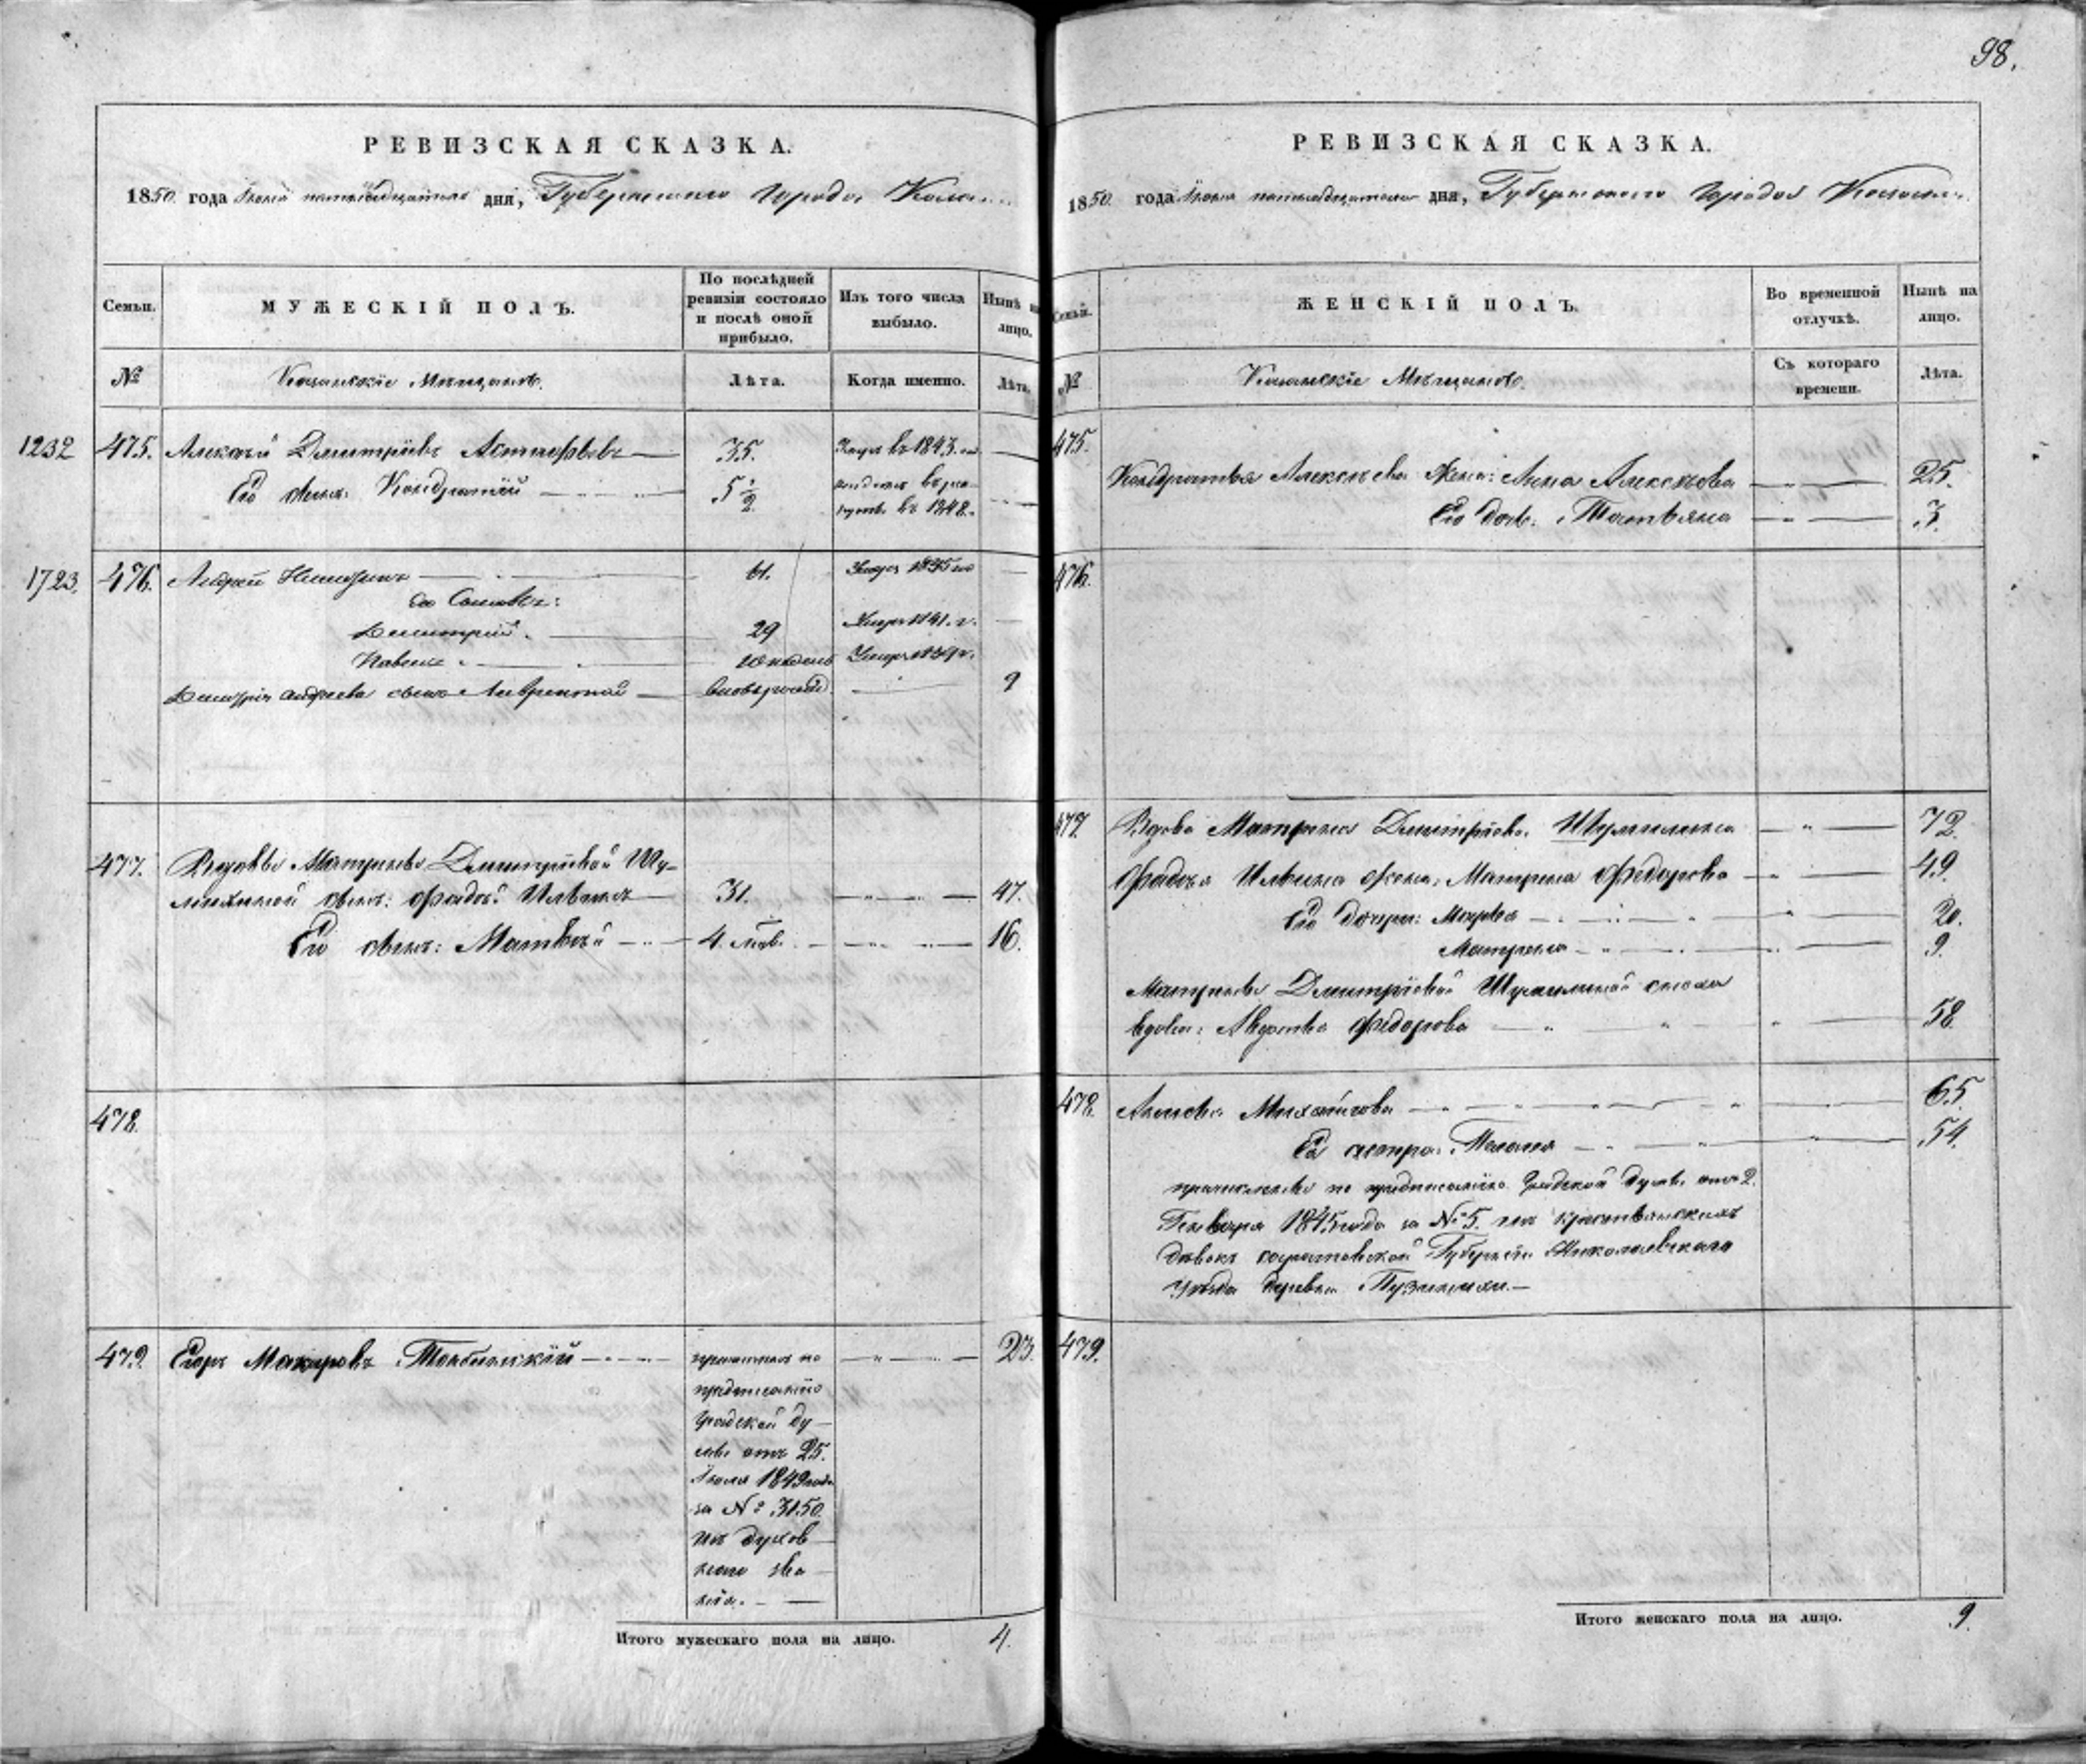 98.
РЕВИЗСКАЯ СКАЗКА.
1850 года Июня пятнадцатого дня, Губернского города Казани
Семьи.
МУЖЕСКІЙ ПОЛЪ.
По послѣдней ревизіи состояло и послѣ оной прибыло.
Изъ того числа выбыло.
Нынѣ на лицо.
№
Казанскіе Мѣщане.
Лѣта.
Когда именно.
Лѣта.
1232
475. Алексѣй Дмитріевъ 35. въ 1843.
Его сынъ: Кондратій 5 1/2
въ 1848.
1723.
476. Андрей 61.
Его Сыновья:
Дмитрій. 29
Павелъ
Дмитрія Андреева сынъ Лаврентій 9
477. Вдовы Матрены Дмитріевой Шу-
милиной сынъ: Фадѣй Ильинъ 31. 47.
Его сынъ: Матвѣй 4. 16.
478.
479. Егоръ Макаровъ Тоболькій 23.
причисленъ по
предписанію
Градской Ду-
мы отъ 25.
Іюля 1849 года
за № 3150
изъ духов-
наго зва-
нія.
Итого мужескаго пола на лицо. 4.
РЕВИЗСКАЯ СКАЗКА.
1850 года Июня пятнадцатого дня, Губернского города Казани
Семьи.
ЖЕНСКІЙ ПОЛЪ.
Во временной отлучкѣ.
Нынѣ на лицо.
№
Казанскіе Мѣщане.
Съ котораго времени.
Лѣта.
475.
Кондратья Алексѣева Жена: Анна Алексѣева 25.
Его дочь: Татьяна 3.
476.
477. Вдова Матрена Дмитріева Шумилина 72.
Фадѣя Ильина жена: Матрена Федорова 49.
Его дочери: Марѳа 20.
Матрена 9.
Матрены Дмитріевой Шумилиной сноха
вдова: Авдотья Федорова 58.
478. Михайлова 65
Ея сестра: 54.
причислены по предписанію Градской Думы отъ 2.
Генваря 1845 года за № 5. изъ крестьянскихъ
дѣвокъ Саратовской Губерніи Николаевскаго
уѣзда деревни
479.
Итого женскаго пола на лицо. 9.